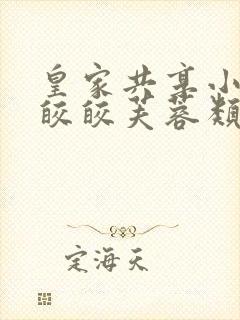 皇家共享小
皎皎芙蓉类
定海天